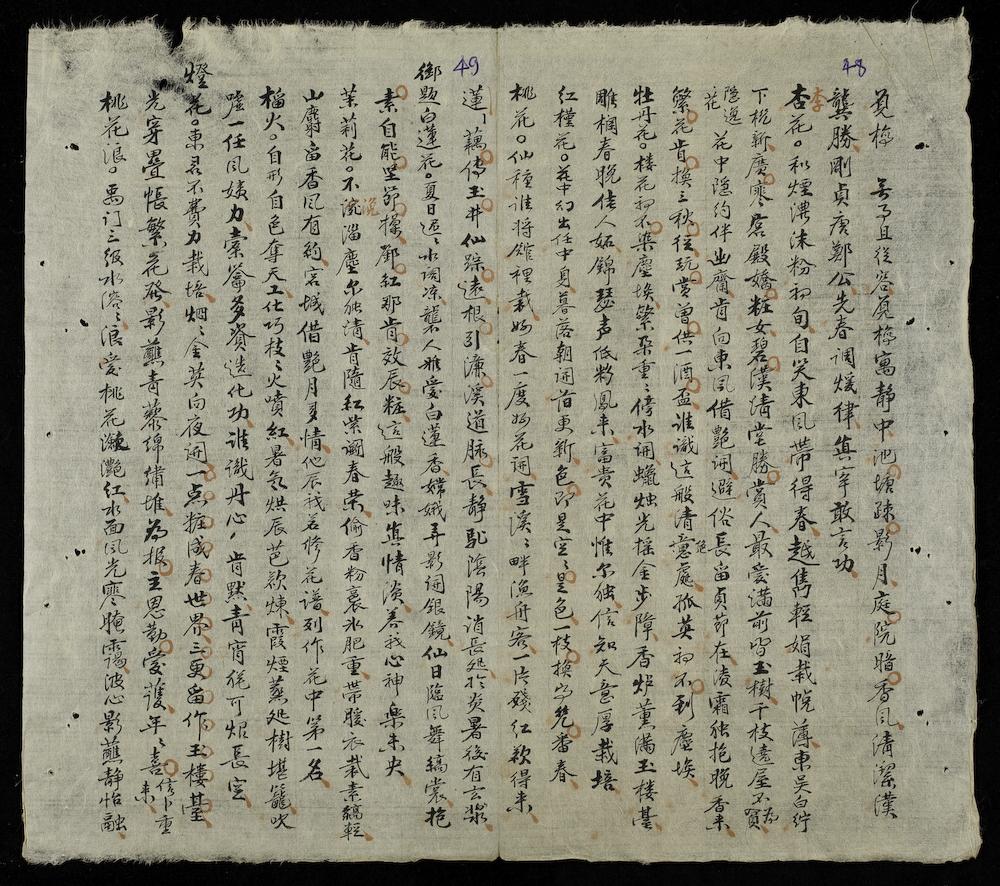 48
覓梅 無事且從容覓梅寓靜中池塘疎影月庭院暗香風清潔漢
龔勝剛貞唐鄭公先春調煖律真宰敢言功
李
杏花。和煙濃沫粉初旬自笑東風帶得春越雋輕娟裁帨薄東吳白紵
下機新廣寒宮殿嬌粧女碧漢清堂勝賞人最愛滿前皆玉樹千枝遶屋不為貧
隐逸花 花中隐約伴幽齋肯向東風借艷開避俗長留貞節在凌霜独抱晚香來
繁花肯換三秋徑玩賞曾供一酒盃誰識這般清意處孤英初不到塵埃
牡丹花。楼花初不染塵埃繁朶重〻傍水開蠟燭光摇金步障香炉薰滿玉楼臺
雕欄春晚佳人妬錦瑟声低彩鳳來富貴花中惟尔独信知天意厚栽培
紅槿花。花中幻出任中身暮落朝開首更新色即是空〻是色一枝換與先番春
桃花。仙種誰將雒裡栽好春一度好花開雪溪〻畔漁舟客一片殘紅欲得來
49
蓮〻藕傳玉井仙踪遠根引濂溪道脉長靜馳陰陽消長处於炎暑後有玄漿
御題白蓮花。夏日遲〻水閣凉襲人雅愛白蓮香嫦娥弄影開銀鏡仙日臨風舞縞裳抱
素自能坚節操鄧紅那肯效辰粧這般趣味真情淡养我心神樂未央
茉莉花。不涴淄塵尔独清肯隨紅紫鬬春荣偷香粉裹氷肥重帶腰衣裁素縞輕
山麝畄香風有約宮城借艷月多情他辰我若修花譜列作花中第一名
榴火。自形自色奪天工化巧枝〻火噴紅暑氣烘辰芭欲煉霞煙蒸处樹堪籠吹
噓一任風姨力橐籥多資造化功誰識丹心〻肯黙青宵能可炤長空
燈花。東君不費力栽培烟〻金英向夜開一点粧成春世界三更畄作玉樓臺
光穿疊帳繁花發影蘸青藜綿繡堆為报主恩勤愛護年〻喜信卜重來
桃花浪。禹门三级水滔〻浪爱桃花瀲艷紅水面風光寒腌靄波心影蘸静怡融